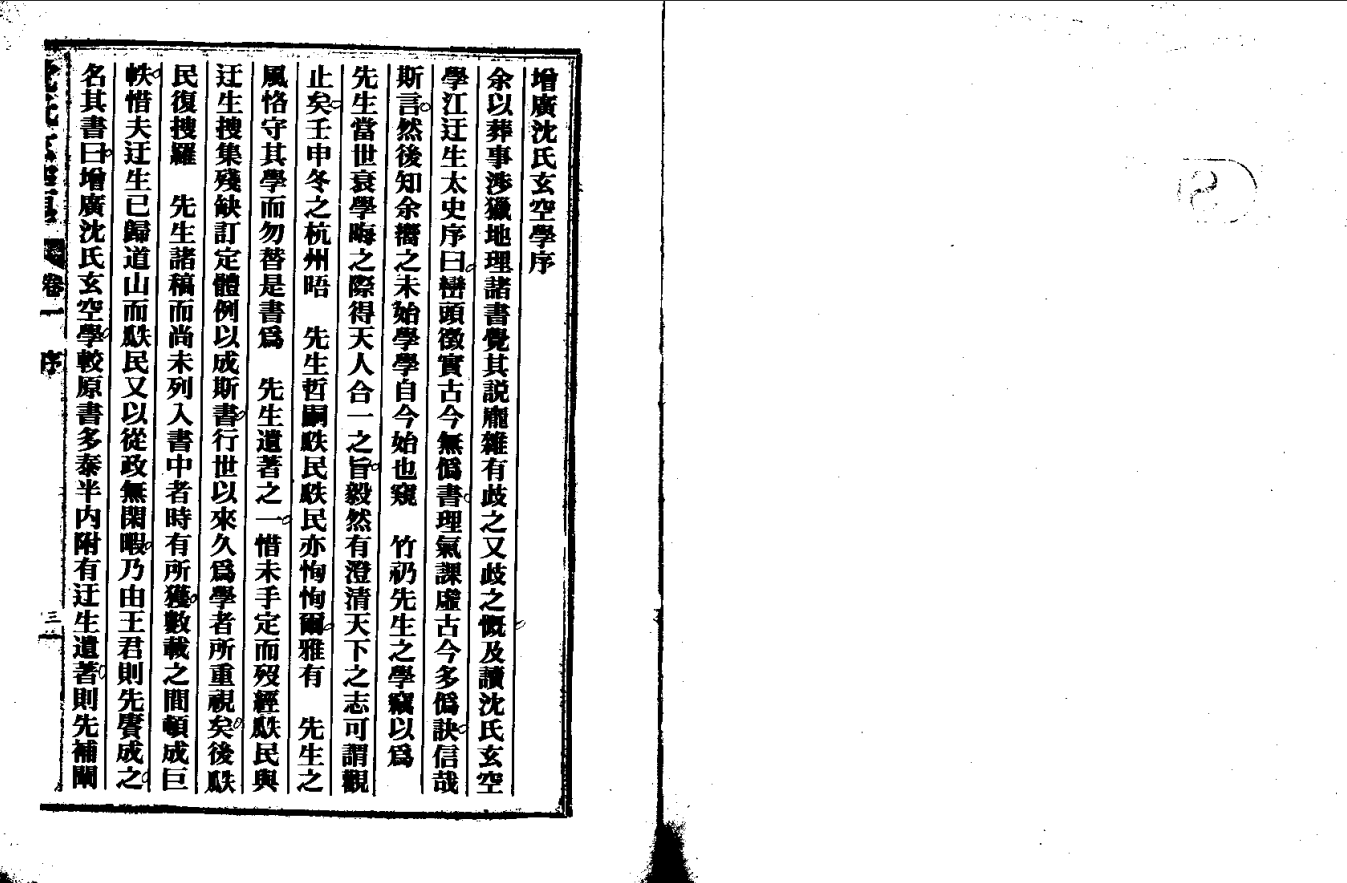 增廣沈氏玄空學序
余以葬事涉獵地理諸書覺其説龐雜有歧之又歧之慨及讀沈氏玄空
學江迂生太史序曰巒頭徵實古今無僞書理氣課虛古今多僞訣信哉
斯言然後知余嚮之未始學學自今始也窺　竹礽先生之學竊以爲
先生當世衰學晦之際得天人合一之旨毅然有澄清天下之志可謂觀
止矣壬申冬之杭州晤　先生哲嗣瓞民瓞民亦恂恂爾雅有　先生之
風恪守其學而勿替是書爲　先生遺著之一惜未手定而歿經瓞民與
迂生搜集殘缺訂定體例以成斯書行世以來久爲學者所重視矣後瓞
民復搜羅　先生諸稿而尚未列入書中者時有所獲數載之間頓成巨
帙惜夫迂生已歸道山而瓞民又以從政無閑暇乃由王君則先賡成之
名其書曰增廣沈氏玄空學較原書多泰半内附有迂生遺著則先補闡
卷一　序
三